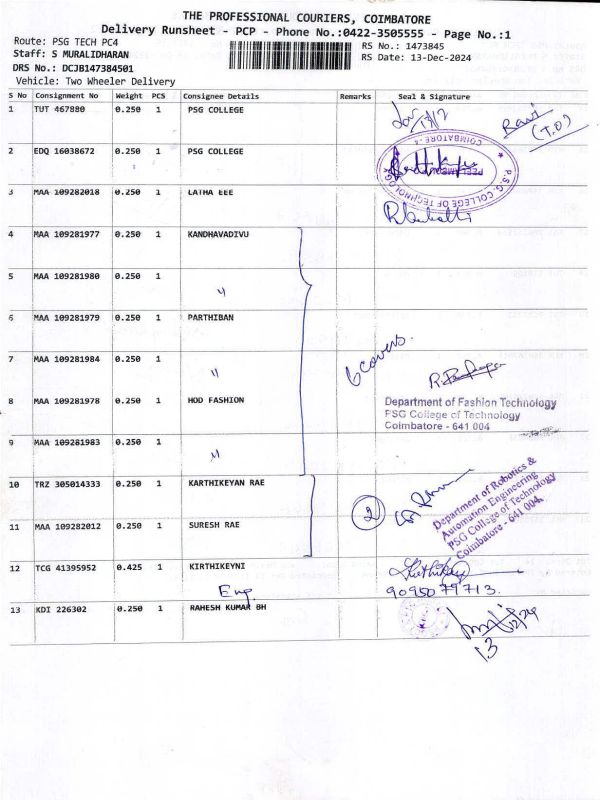 THE PROFESSIONAL COURIERS, COIMBATORE
Delivery Runsheet - PCP - Phone No.:0422-3505555 - Page No.:1
Route: PSG TECH PC4 RS No.: 1473845
Staff: S MURALIDHARAN RS Date: 13-Dec-2024
DRS No.: DCJB147384501
Vehicle: Two Wheeler Delivery
S No Consignment No Weight PCS Consignee Details Remarks Seal & Signature
1 TUT 467880 0.250 1 PSG COLLEGE
Ravi
(T.O)
COIMBATORE-4
2 EDQ 16038672 0.250 1 PSG COLLEGE
P.S.G. COLLEGE OF TECHNOLOGY
3 MAA 109282018 0.250 1 LATHA EEE
4 MAA 109281977 0.250 1 KANDHAVADIVU
5 MAA 109281980 0.250 1 "
6 MAA 109281979 0.250 1 PARTHIBAN
6 covers.
7 MAA 109281984 0.250 1 "
8 MAA 109281978 0.250 1 HOD FASHION
Department of Fashion Technology
PSG College of Technology
Coimbatore - 641 004
9 MAA 109281983 0.250 1 "
10 TRZ 305014333 0.250 1 KARTHIKEYAN RAE
2
Department of Robotics &
Automation Engineering
PSG College of Technology
Coimbatore - 641 004.
11 MAA 109282012 0.250 1 SURESH RAE
12 TCG 41395952 0.425 1 KIRTHIKEYNI
Eng
9095079713.
13 KDI 226302 0.250 1 RAHESH KUMAR BH
13